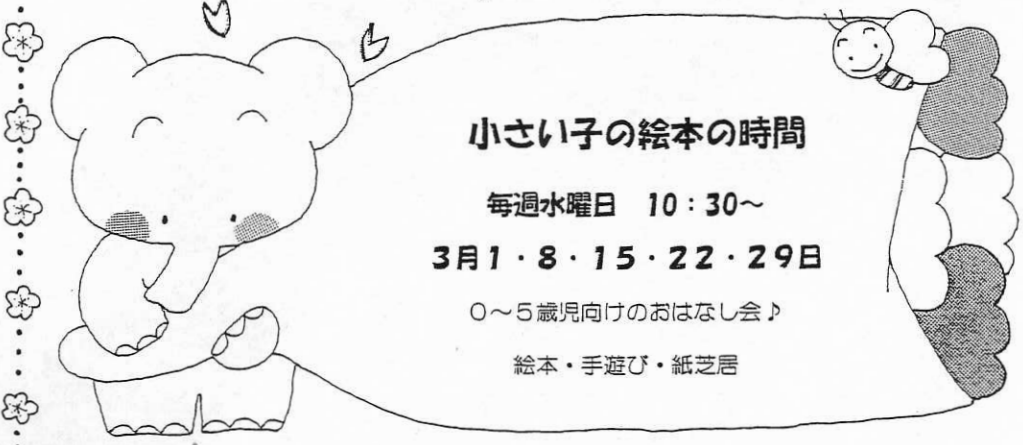 小さい子の絵本の時間
毎週水曜日　10：30～
3月1・8・15・22・29日
０～５歳児向けのおはなし会♪
絵本・手遊び・紙芝居